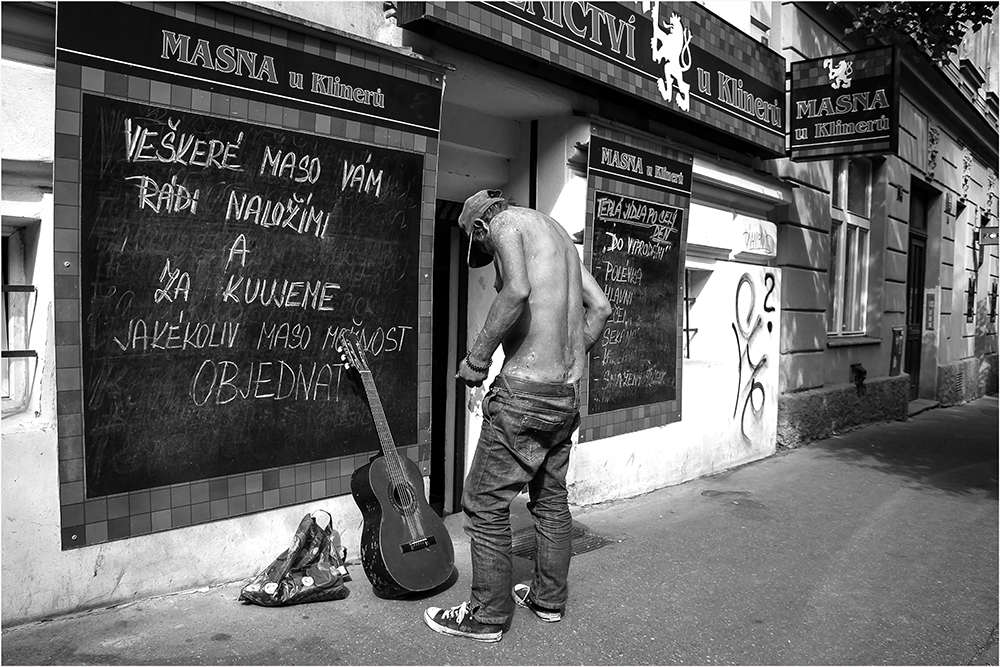 MASNA u Klinerů
VEŠKERÉ MASO VÁM
RÁDI NALOŽÍME
A
ZA KUUJEME
JAKÉKOLIV MASO MOŽNOST
OBJEDNAT
u Klinerů
MASNA
u Klinerů
MASNA u Klinerů
TEPLÁ JÍDLA PO CELÝ
DEN
"DO VYPRODÁNÍ"
- POLÉVKA
- HLAVNÍ
- SMAŽENÝ
?